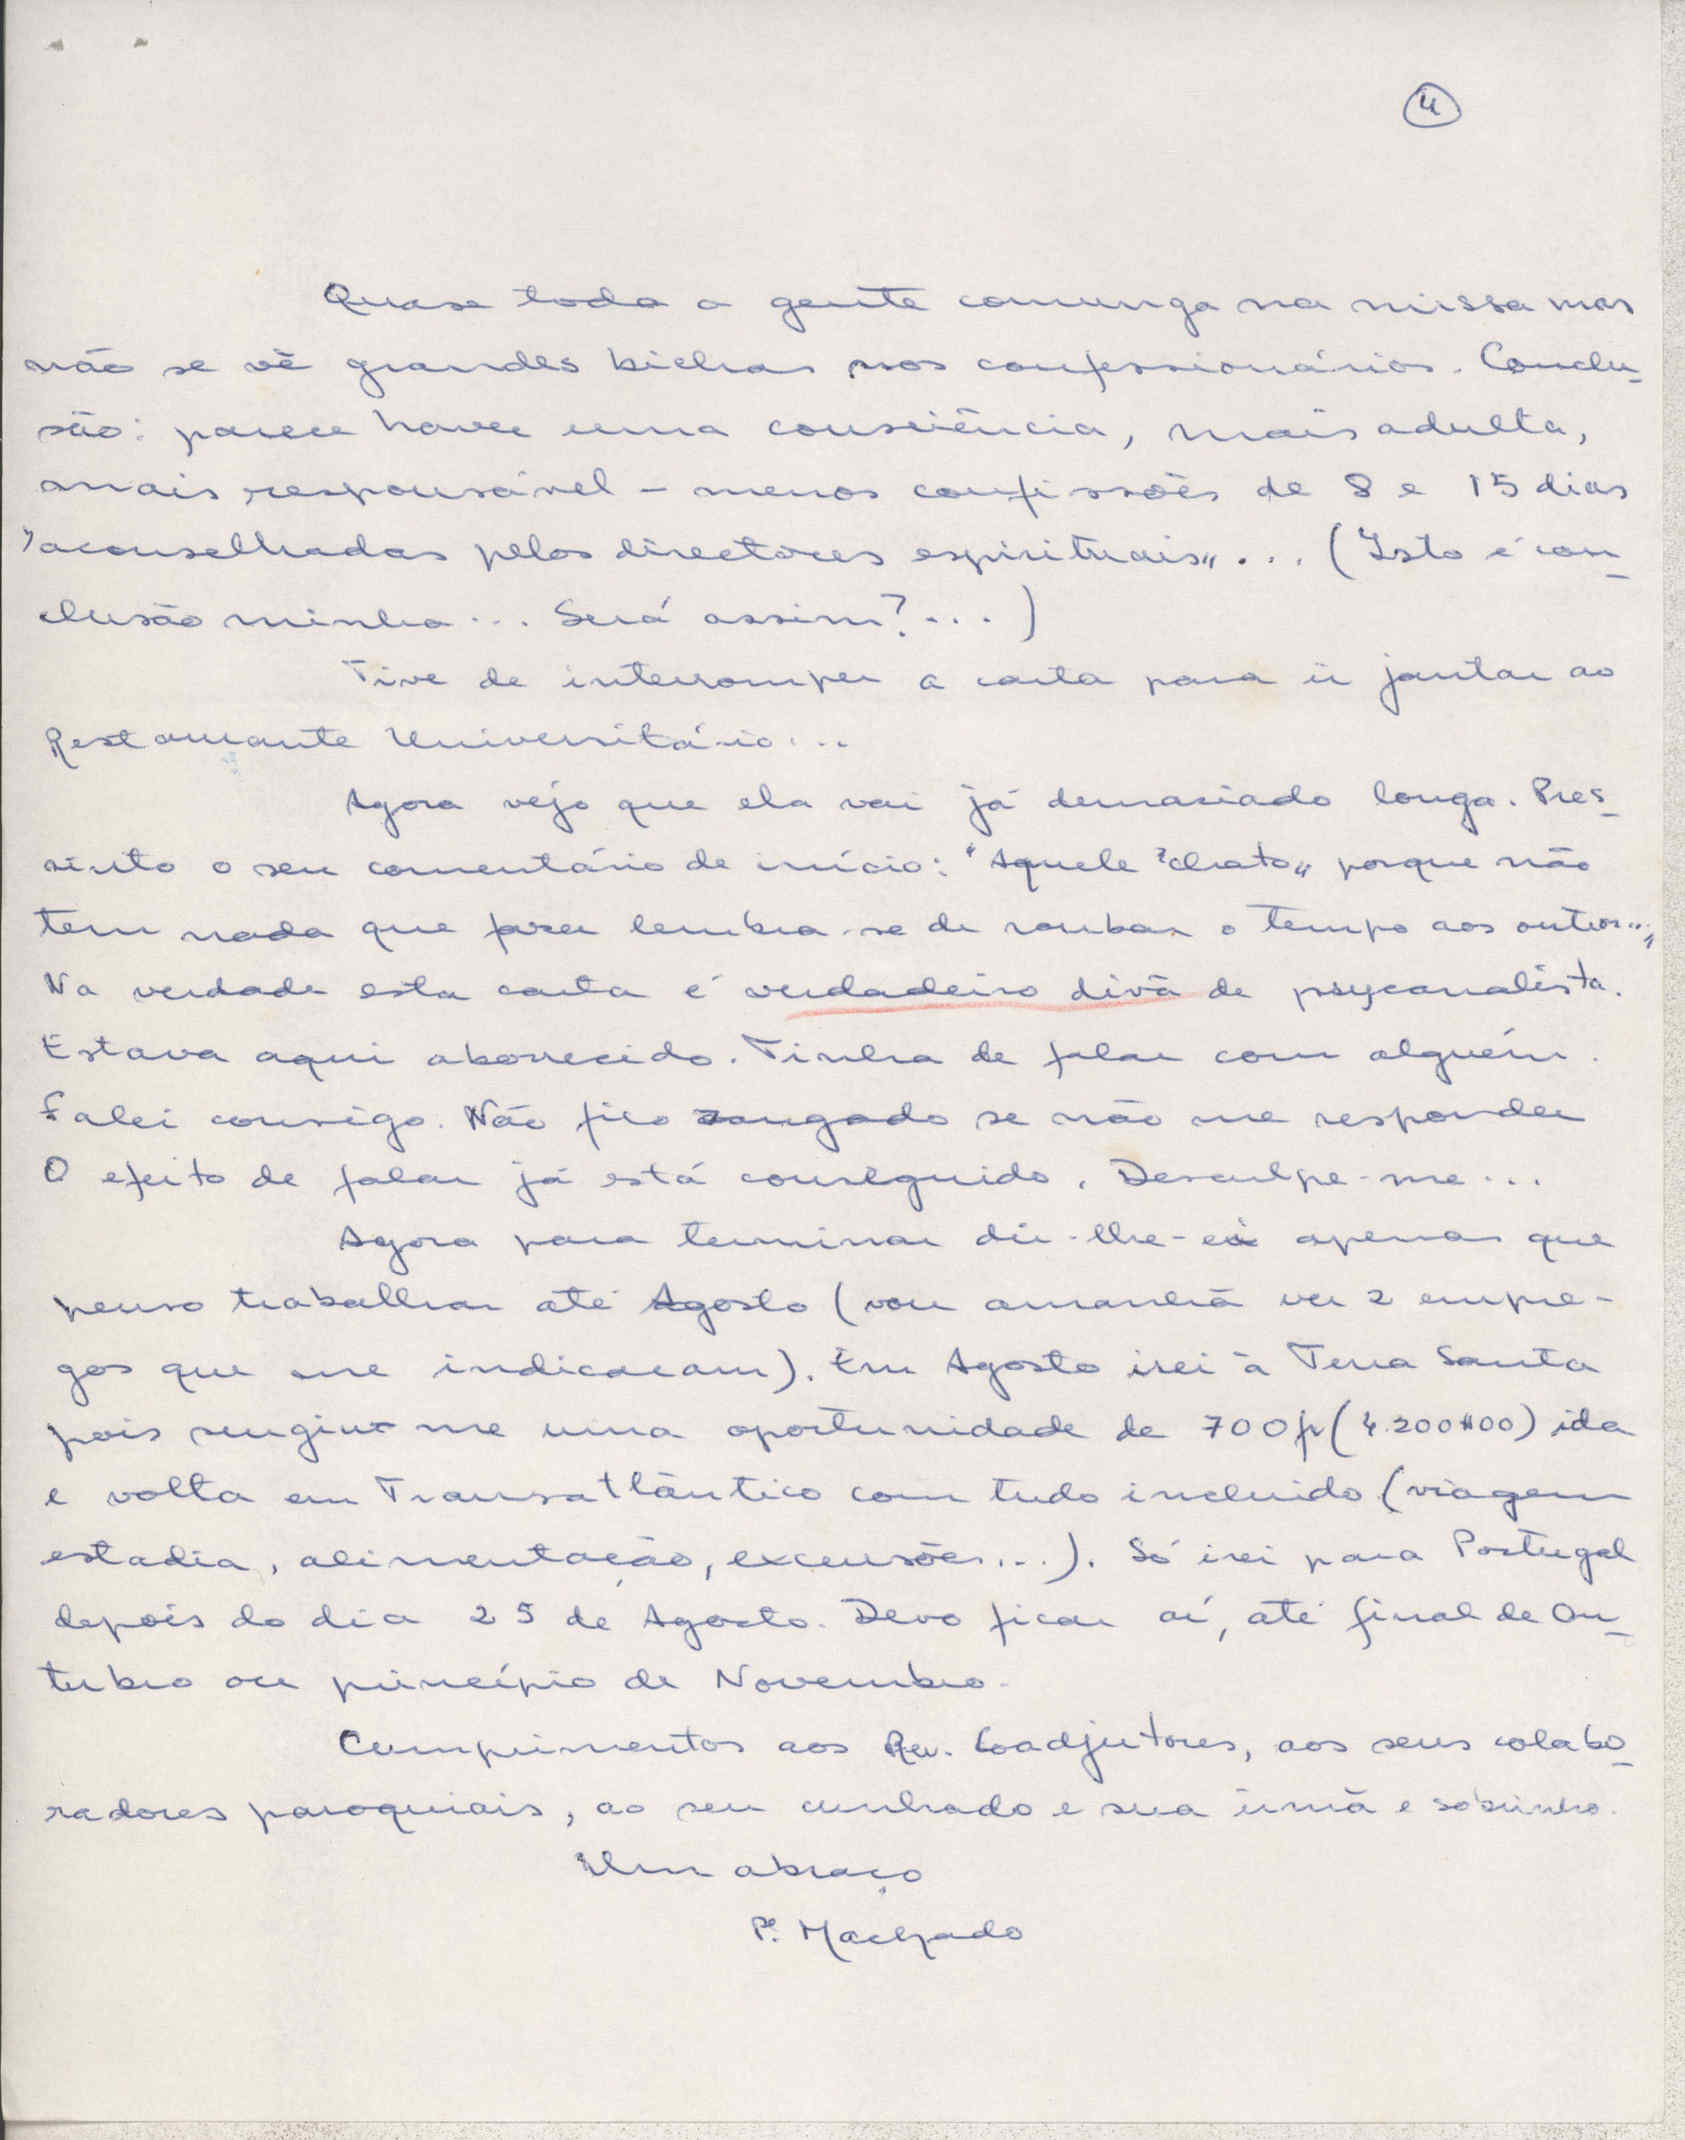 4
Quase toda a gente comunga na missa mas
não se vê grandes bichas nos confessionários. Conclu-
são: parece haver uma consciência, mais adulta,
mais responsável - menos confissões de 8 e 15 dias
"aconselhadas pelos directores espirituais"... (Isto é con-
clusão minha... Será assim?...)
Tive de interromper a carta para ir jantar ao
Restaurante Universitário...
Agora vejo que ela vai já demasiado longa. Pres-
sinto o seu comentário de início: "Aquele "chato" porque não
tem nada que fazer lembra-se de roubar o tempo aos outros..."
Na verdade esta carta é verdadeiro divã de psycanalista.
Estava aqui aborrecido. Tinha de falar com alguém.
Falei consigo. Não fico zangado se não me responder
O efeito de falar já está conseguido. Desculpe-me...
Agora para terminar dir-lhe-ei apenas que
penso trabalhar até Agosto (vou amanhã ver 2 empre-
gos que me indicaram). Em Agosto irei à Terra Santa
pois surgiu-me uma oportunidade de 700fr (4.200$00) ida
e volta em Transatlântico com tudo incluido (viagem
estadia, alimentação, excursões...). Só irei para Portugal
depois do dia 25 de Agosto. Devo ficar aí, até final de Ou-
tubro ou princípio de Novembro.
Cumprimentos aos Rev. Coadjutores, aos seus colabo-
radores paroquiais, ao seu cunhado e sua irmã e sobrinho.
Um abraço
Pe. Machado